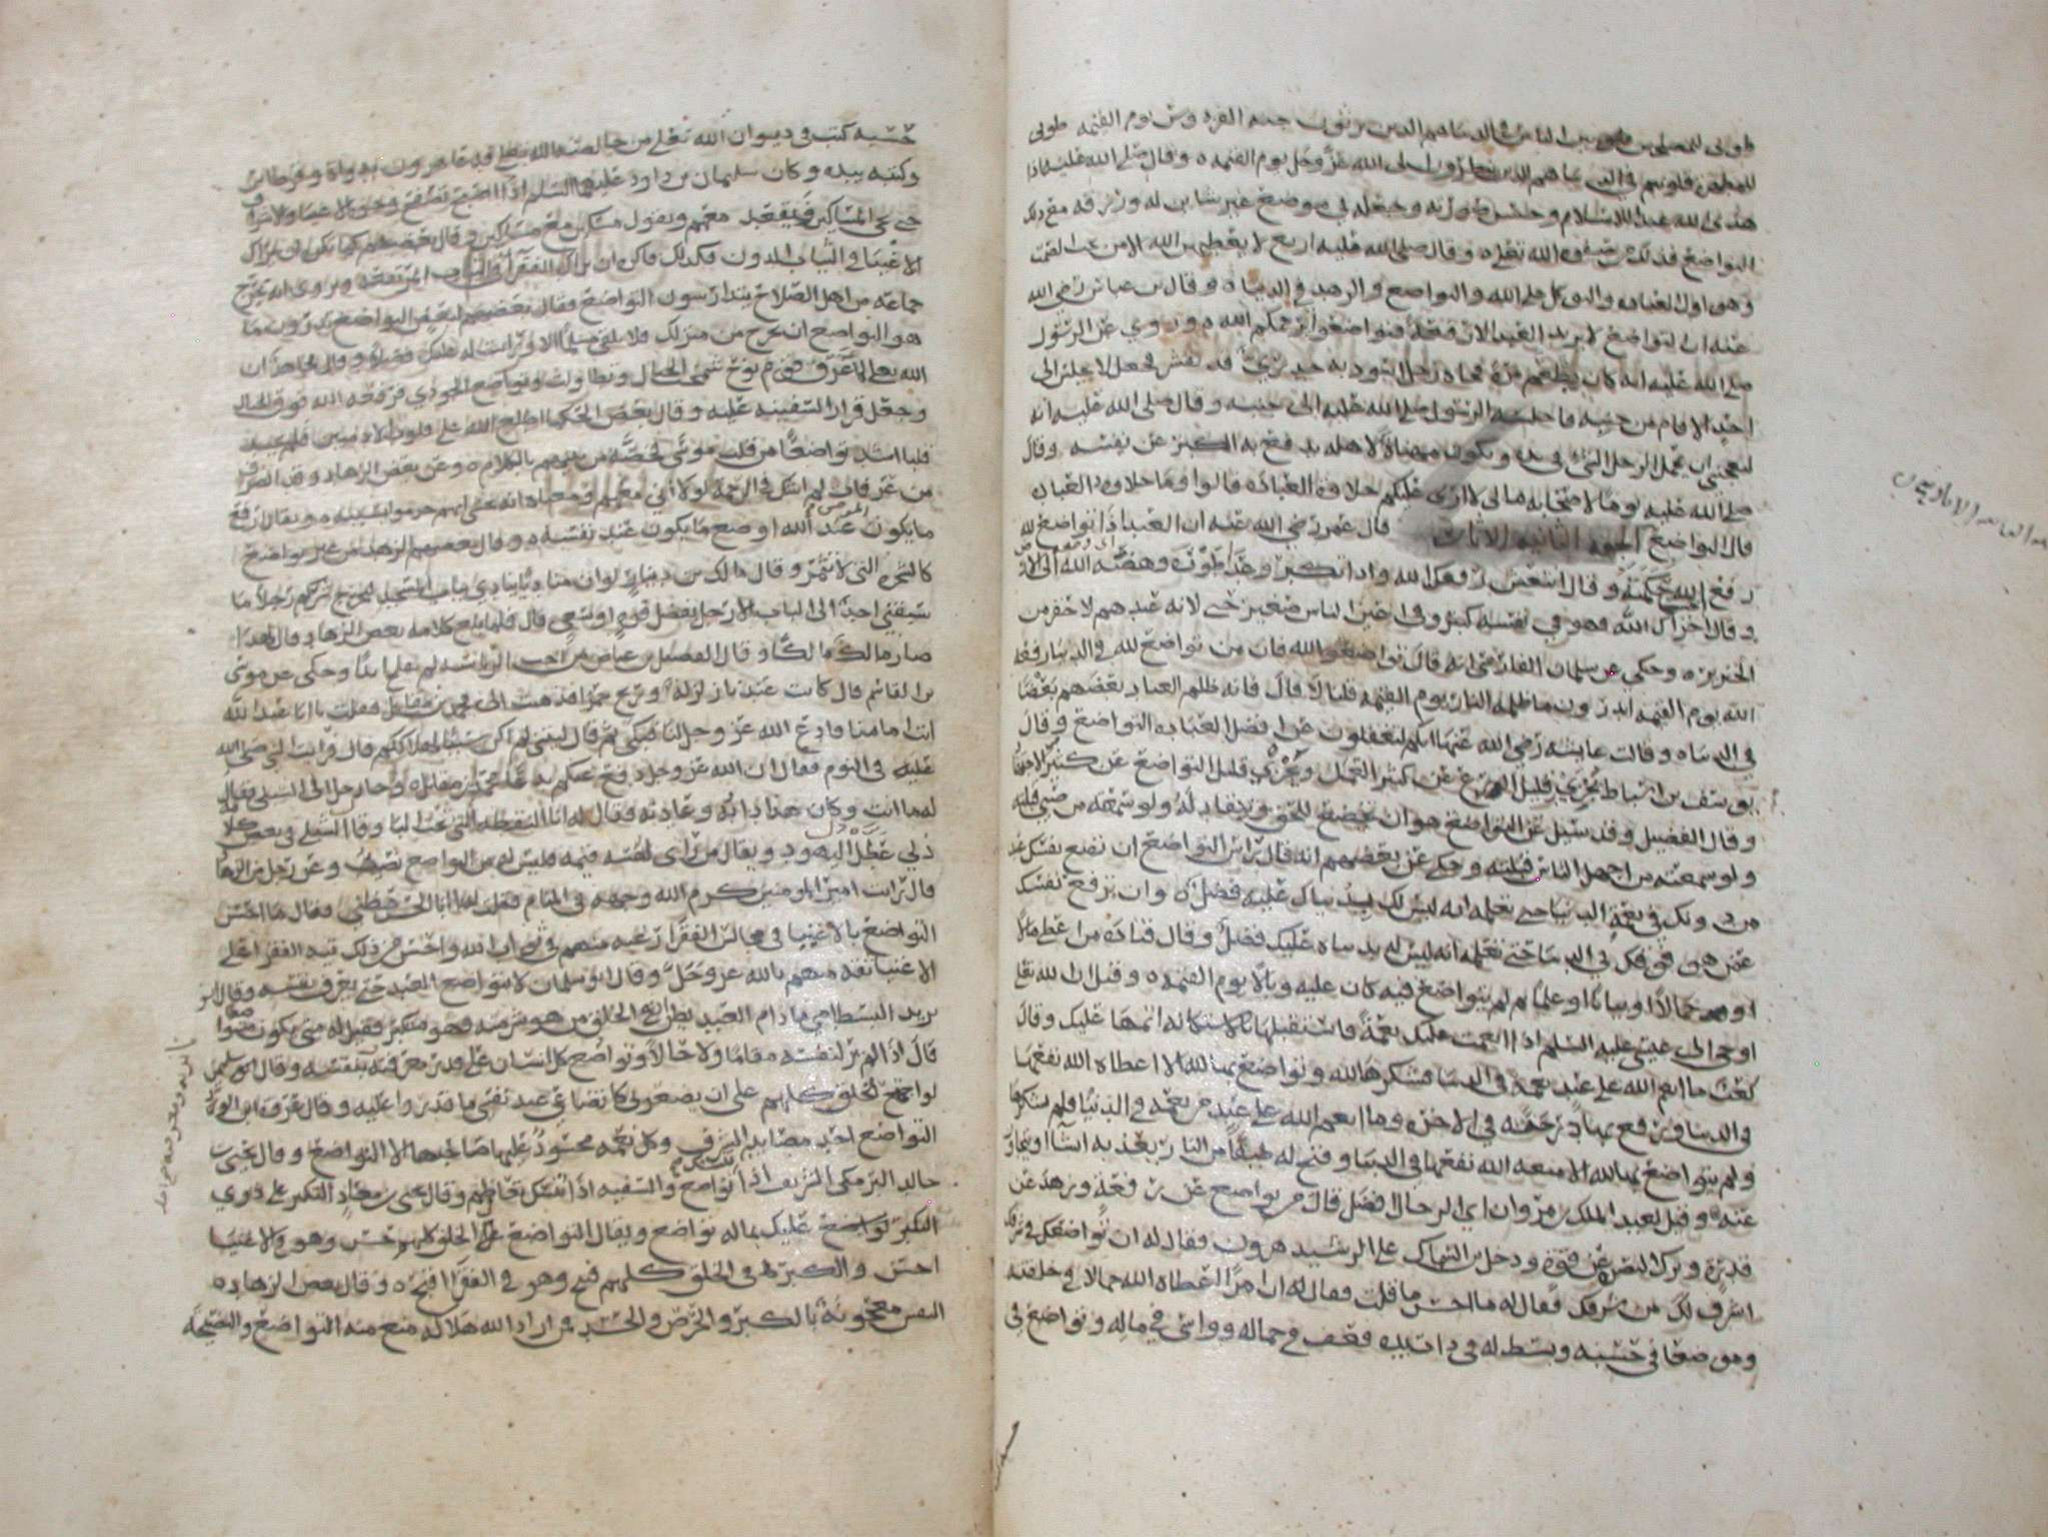 طوبى للمصلحين بين الناس في الدنيا هم الذين يرثون جنة الفردوس يوم القيمة طوبى
للمطهرة قلوبهم في الدنيا هم الذين ينظرون الى الله عز وجل يوم القيمة وقال صلى الله عليه اذا
هدى الله عبدا للاسلام وحسن صورته وجعله في موضع غير شاين له ورزقه مع ذلك
التواضع فذلك من صفوه الله تعلى وقال صلى الله عليه اربع لا يعطيهن الله الا من احب الصمت
وهو اول العباده والتوكل على الله والتواضع والزهد في الدنيا وقال بن عباس رضي الله
عنه ان التواضع لا يزيد العبد الا رفعة فتواضعوا يرحمكم الله وروي عن الرسول
صلى الله عليه انه كان يطعم فجاه رجل اسود به جدري قد تقشر فجعل لا يجلس الى
احد الا قام من جنبه فاجلسه الرسول صلى الله عليه الى جنبه وقال صلى الله عليه انه
ليعجبني ان يحمل الرجل الشيء في يده ويكون مهناة لاهله يدفع به الكبر عن نفسه وقال
صلى الله عليه يوما لاصحابه مالي لا ارى عليكم حلاوة العباده قالوا وما حلاوة العباده
قال التواضع الجهة الثانيه الاثار قال عمر رضي الله عنه ان العبد اذا تواضع لله
رفع الله حكمته وقال انتعش رفعك الله واذا تكبر وعدا طوره وهصه الله الى الارض
وقال اخزاك الله فهو في نفسه كبير وفي اعين الناس صغير حتى لانه عندهم لاحقر من
الخنزير وحكي عن سلمان الفارسي انه قال تواضعوا لله فان من تواضع لله في الدنيا رفعه
الله يوم القيمه اتدرون ما ظلمه النار يوم القيمه قلنا لا قال فانه ظلم العباد بعضهم بعضا
في الدنيا وقالت عايشه رضي الله عنها انكم لتغفلون عن افضل العباده التواضع وقال
يوسف بن اسباط يجزي قليل الورع عن كثير العمل ويجزي قليل التواضع عن كثير الاجتهاد
وقال الفضيل وقد سئل عن التواضع هو ان تخضع للحق وتنقاد له ولو سمعته من صبي قبلته
ولو سمعته من اجهل الناس قبلته وحكي عن بعضهم انه قال راس التواضع ان تضع نفسك عند
من دونك في نعمة الدنيا حتى تعلمه انه ليس لك بدنياك عليه فضل وان ترفع نفسك
عمن هو فوقك في الدنيا حتى تعلمه انه ليس له بدنياه عليك فضل وقال قتاده من اعطي مالا
او جمالا او بيانا او علما ثم لم يتواضع فيه كان عليه وبالا يوم القيمه وقيل ان الله تعلى
اوحى الى عيسى عليه السلم اذا انعمت عليك نعمة فاستقبلها بالاستكانه اتمها عليك وقال
كعب ما انعم الله على عبد نعمة في الدنيا فشكرها لله وتواضع بها لله الا اعطاه الله نفعها
في الدنيا ورفع بها درجته في الاخره وما انعم الله على عبد من نعمه في الدنيا فلم يشكرها
ولم يتواضع بها لله الا منعه الله نفعها في الدنيا وفتح له طبقا من النار يعذبه ان شا او يتجاوز
عنه وقيل لعبد الملك بن مروان اي الرجال افضل قال من تواضع عن رفعة وزهد عن
قدرة وترك النصره عن قوة ودخل بن السماك على الرشيد هرون فقال له ان تواضعك في شرفك
اشرف لك من شرفك فقال له ما احسن ما قلت فقال له ان امرا اعطاه الله جمالا في خلقته
وموضعا في حسبه وبسط له في ذات يده فعف في جماله وواسى في ماله وتواضع في
حسبه كتب في ديوان الله تعلى من خالص الله تعلى فدعا هرون بدواة وقرطاس
وكتبه بيده وكان سليمان بن داود عليهما السلم اذا اصبح تصفح وجوه الاغنيا والاشراف
حتى يجي المساكين فيقعد معهم ويقول مسكين مع مساكين وقال بعضهم كما تكره ان يراك
الاغنيا في الثياب الدون فكذلك فاكره ان يراك الفقرا في الثياب المرتفعه وروي انه خرج
جماعة من اهل الصلاح يتدارسون التواضع فقال بعضهم لبعض التواضع تدرون ما
هو التواضع ان تخرج من منزلك فلا تلقى مسلما الا رايت له عليك فضلا وقال مجاهد ان
الله تعلى لما غرق قوم نوح شمخت الجبال وتطاولت وتواضع الجودي فرفعه الله فوق الجبال
وجعل قرار السفينه عليه وقال بعض الحكما اطلع الله على قلوب الادميين فلم يجد
قلبا اشد تواضعا من قلب موسى فخصه من بينهم بالكلام وعن بعض الزهاد وقد انصرف
من عرفات لم اشك في الرحمة لولا اني معهم
ما يكون عند الله اوضع ما يكون عند نفسه وقال بعضهم الزهد من غير تواضع
كالشجره التي لا تثمر وقال مالك بن دينار لو ان مناديا ينادي بباب المسجد ليخرج شركم رجلا ما
سبقني احد الى الباب الا رجل بفضل قوه او سعي قال فلما بلغ كلامه بعض الزهاد قال بهذا
صار مالك مالكا وقال الفضيل بن عياض من احب الرياسه لم يفلح ابدا وحكي عن موسى
بن القاسم قال كانت عندنا زلزلة وريح حمرا فذهبت الى محمد بن مقاتل فقلت يا ابا عبد الله
انت امامنا فادع الله عز وجل لنا فبكى ثم قال ليتني لم اكن سبب هلاككم قال فرايت النبي صلى الله
عليه في النوم فقال ان الله عز وجل دفع عنكم بدعا محمد بن مقاتل وجا رجل الى الشبلي فقال
له ما انت وكان هذا دابه وعادته فقال له انا النقطه التي تحت البا وقال الشبلي في بعض كلامه
ذلي عطل ذل اليهود ويقال من راى لنفسه قيمه فليس له من التواضع نصيب وعن رجل من الزهاد
قال رايت امير المومنين كرم الله وجهه في المنام فقلت له يا ابا الحسن عظني فقال ما احسن
التواضع بالاغنيا في مجالس الفقرا رغبه منهم في ثواب الله واحسن من ذلك تيه الفقرا على
الاغنيا ثقه منهم بالله عز وجل وقال ابو سلمان لا يتواضع العبد حتى يعرف نفسه وقال ابو
يزيد البسطامي ما دام العبد يظن ان في الخلق من هو شر منه فهو متكبر فقيل له متى يكون متواضعا
قال اذا لم ير لنفسه مقاما ولا حالا وتواضع كل انسان على قدر معرفته بنفسه وقال ابو سليمن
لو اجتمع الخلق كلهم على ان يضعوني كاتضاعي عند نفسي ما قدروا عليه وقال عروة ابن الورد
التواضع احد مصايد الشرف وكل نعمه محسود عليها صاحبها الا التواضع وقال يحيى بن
خالد البرمكي الشريف اذا تنسك تواضع والسفيه اذا تنسك تعاظم وقال يحيى بن معاذ التكبر على ذوي
التكبر عليك بماله تواضع ويقال التواضع في الخلق كلهم حسن وهو في الاغنيا
احسن والكبر في الخلق كلهم قبيح وهو في الفقرا اقبح وقال بعض الزهاد
النفس معجونة بالكبر والحرص والحسد فمن اراد الله هلاكه منع منه التواضع والنصيحة